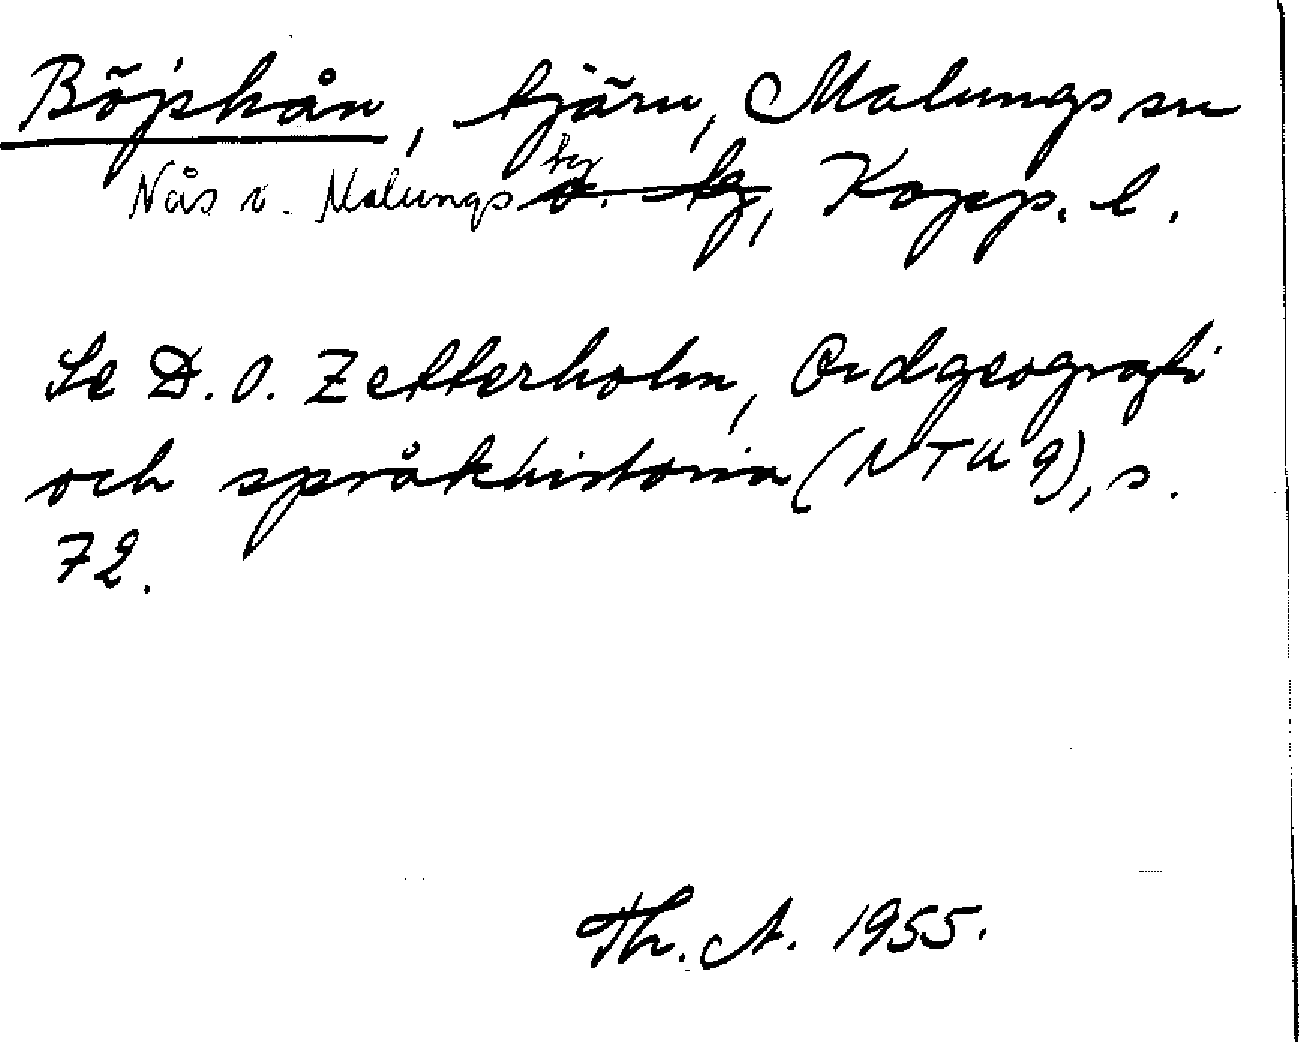 Böjhån, tjärn, Malungs sn
Nås o. Malungs tg, Kopp. l.
Se D. O. Zetterholm, Ordgeografi
och språkhistoria (NTU 9), s.
72.
Th. A. 1955.